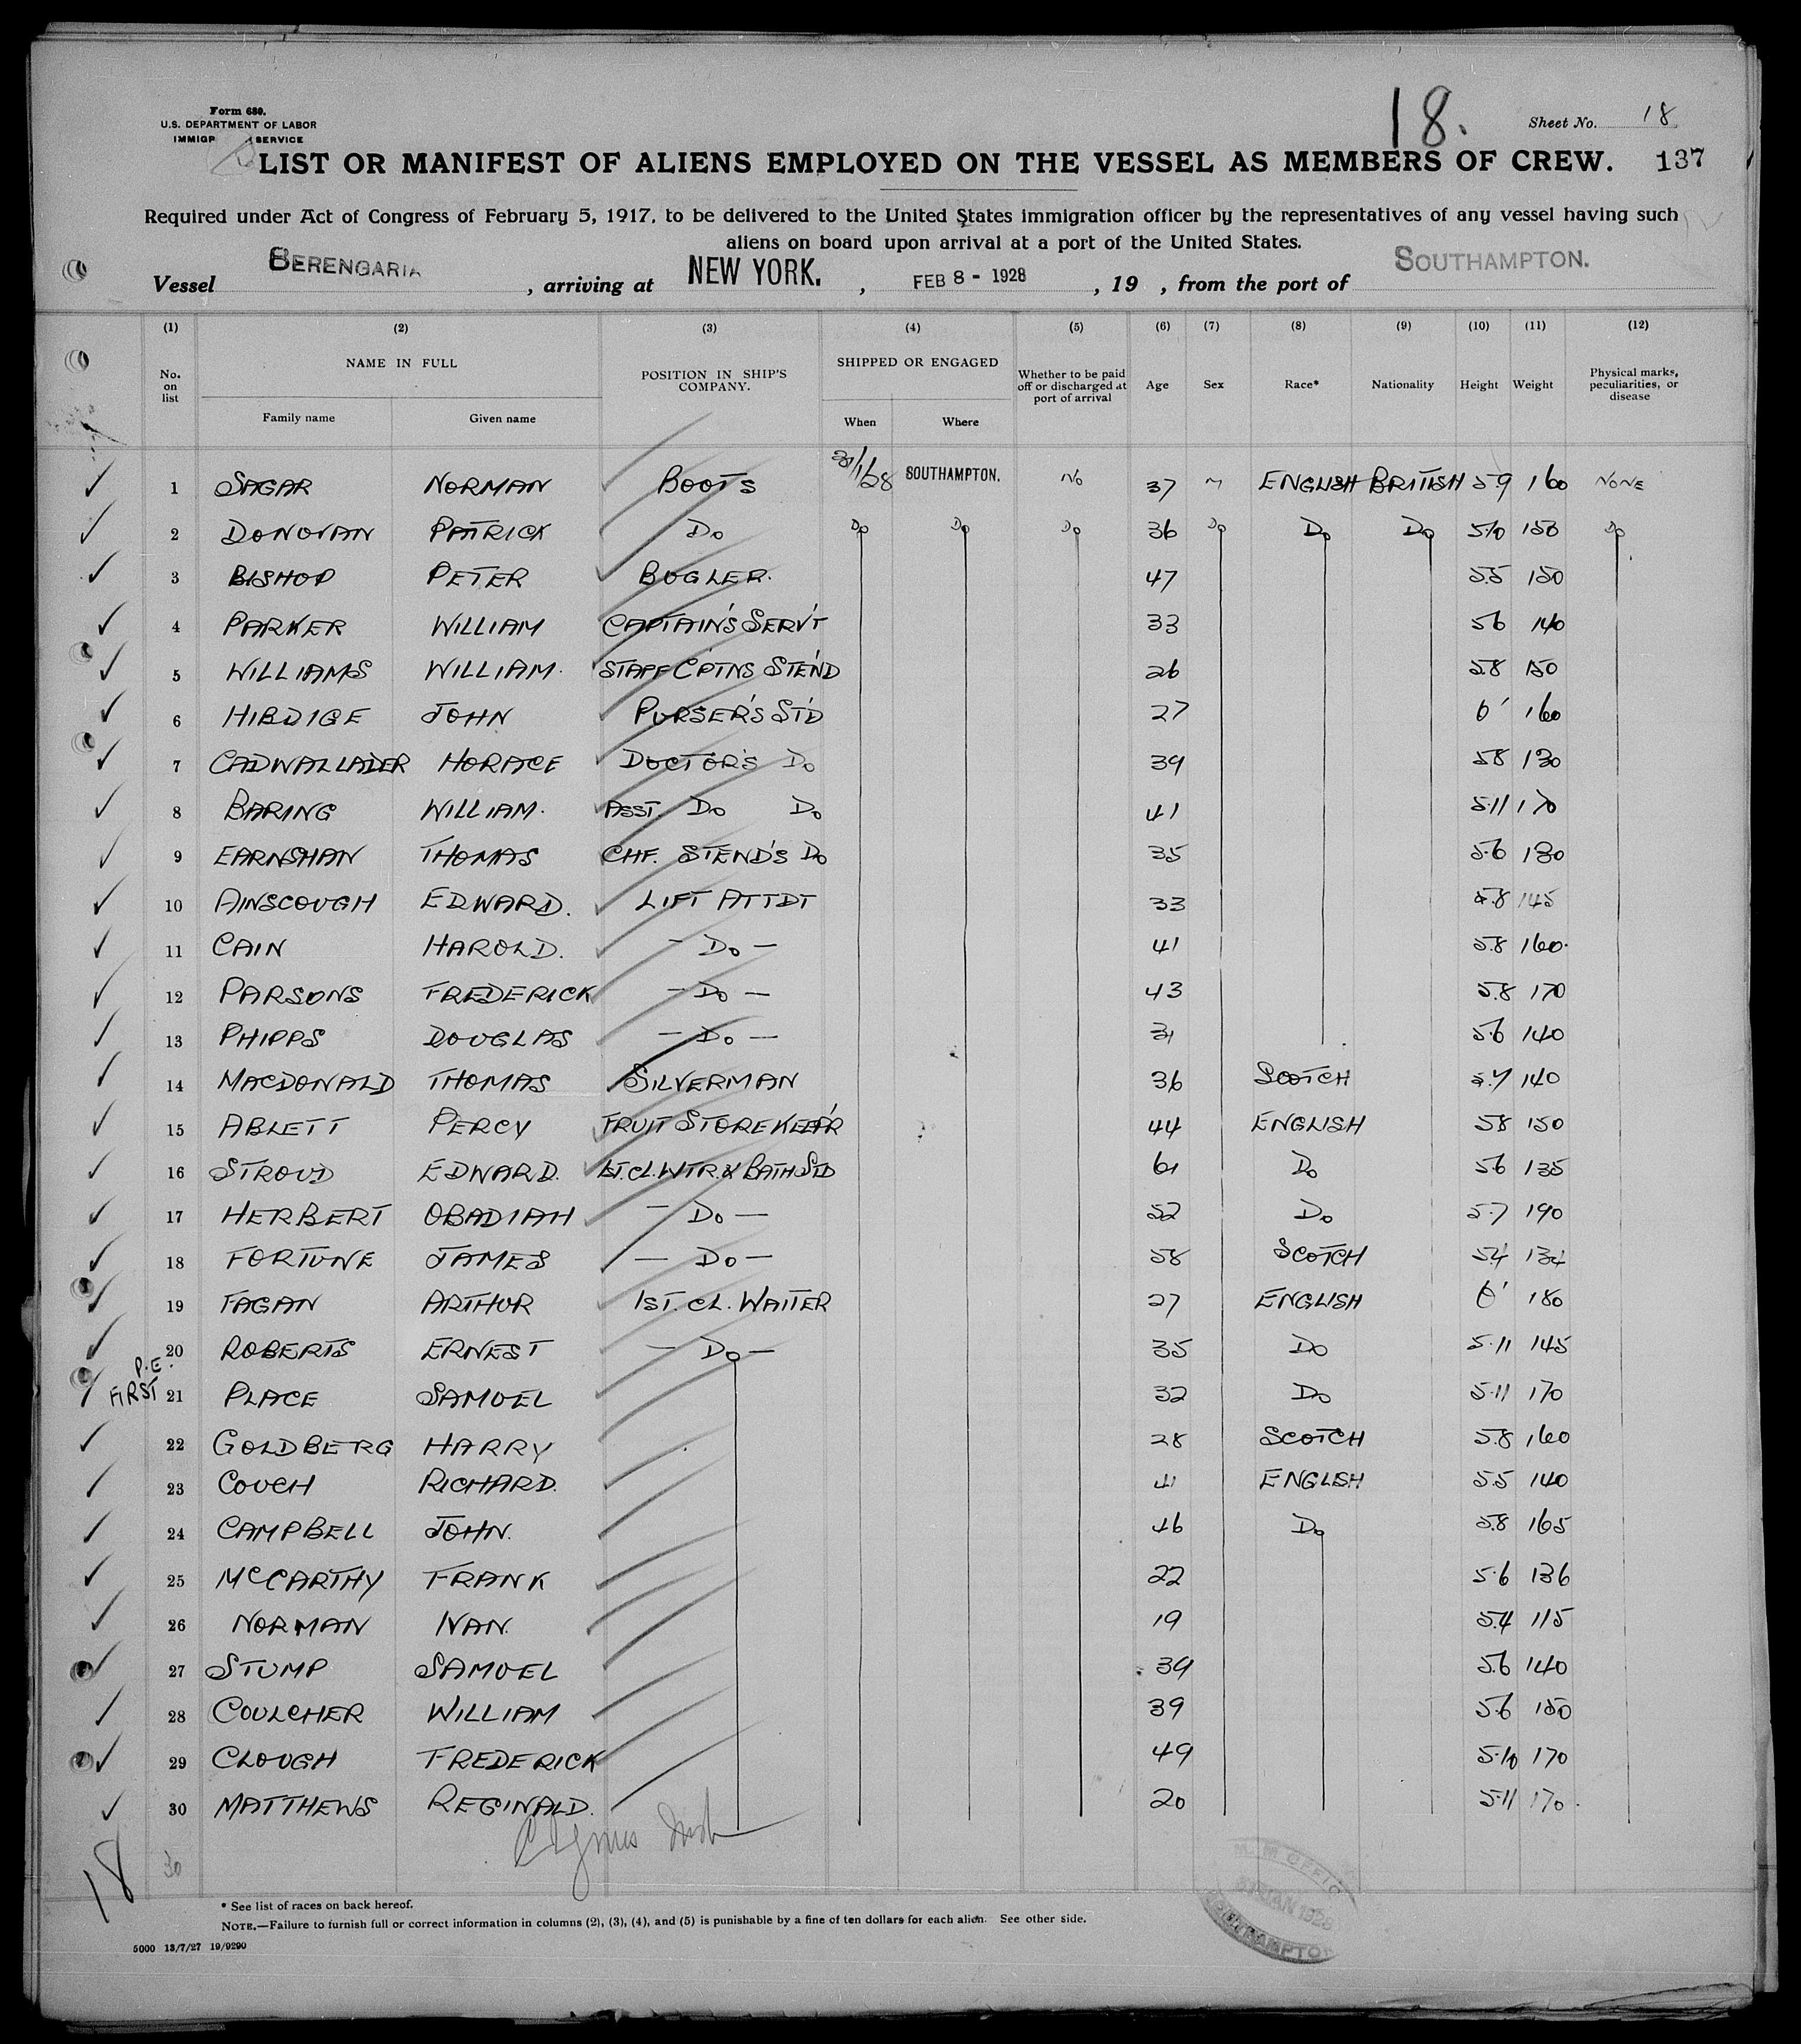 Form 680.
U.S. DEPARTMENT OF LABOR
IMMIGR SERVICE
18.
Sheet No. 18
LIST OR MANIFEST OF ALIENS EMPLOYED ON THE VESSEL AS MEMBERS OF CREW. 137
Required under Act of Congress of February 5, 1917, to be delivered to the United States immigration officer by the representatives of any vessel having such
aliens on board upon arrival at a port of the United States.
Vessel BERENGARIA, arriving at NEW YORK., FEB 8 - 1928, 19 , from the port of SOUTHAMPTON.
(1) (2) (3) (4) (5) (6) (7) (8) (9) (10) (11) (12)
No. on list NAME IN FULL POSITION IN SHIP'S COMPANY. SHIPPED OR ENGAGED Whether to be paid off or discharged at port of arrival Age Sex Race* Nationality Height Weight Physical marks, peculiarities, or disease
Family name Given name When Where
1 SAGAR NORMAN BOOTS 30/1/28 SOUTHAMPTON. No 37 M ENGLISH BRITISH 5.9 160 NONE
2 DONOVAN PATRICK Do Do Do Do 36 Do Do Do 5.10 150 Do
3 BISHOP PETER BUGLER. 47 5.5 150
4 PARKER WILLIAM CAPTAIN'S SERV'T 33 5 6 140
5 WILLIAMS WILLIAM. STAFF C'PTNS STE'ND 26 5.8 150
6 HIBDIGE JOHN PURSER'S ST'D 27 6' 160
7 CADWALLADER HORACE DOCTOR'S Do 39 5 8 130
8 BARING WILLIAM. ASST. Do Do 41 5.11 170
9 EARNSHAW THOMAS CHF. STEND'S Do 35 5.6 130
10 AINSCOUGH EDWARD. LIFT ATTDT 33 5.8 145
11 CAIN HAROLD. - Do - 41 5.8 160.
12 PARSONS FREDERICK - Do - 43 5.8 170
13 PHIPPS DOUGLAS - Do - 31 5.6 140
14 MACDONALD THOMAS SILVERMAN 36 SCOTCH 5.7 140
15 ABLETT PERCY FRUIT STOREKEEP'R 44 ENGLISH 5 8 150
16 STROUD EDWARD. 1ST.CL.WTR.& BATH STD 61 Do 5 6 135
17 HERBERT OBADIAH - Do - 52 Do 5.7 190
18 FORTUNE JAMES - Do - 58 SCOTCH 5.4 134
19 FAGAN ARTHUR 1ST. CL. WAITER 27 ENGLISH 6' 180
20 ROBERTS ERNEST - Do - 35 Do 5.11 145
P.E. FIRST 21 PLACE SAMUEL 32 Do 5.11 170
22 GOLDBERG HARRY 28 SCOTCH 5.8 160
23 COUCH RICHARD. 41 ENGLISH 5.5 140
24 CAMPBELL JOHN. 46 Do 5.8 165
25 McCARTHY FRANK 22 5.6 136
26 NORMAN IVAN. 19 5.4 115
27 STUMP SAMUEL 39 5.6 140
28 COULCHER WILLIAM 39 5.6 150
29 CLOUGH FREDERICK 49 5.10 170
30 MATTHEWS REGINALD. 20 5.11 170.
18 30
* See list of races on back hereof.
NOTE.—Failure to furnish full or correct information in columns (2), (3), (4), and (5) is punishable by a fine of ten dollars for each alien. See other side.
5000 13/7/27 19/9290